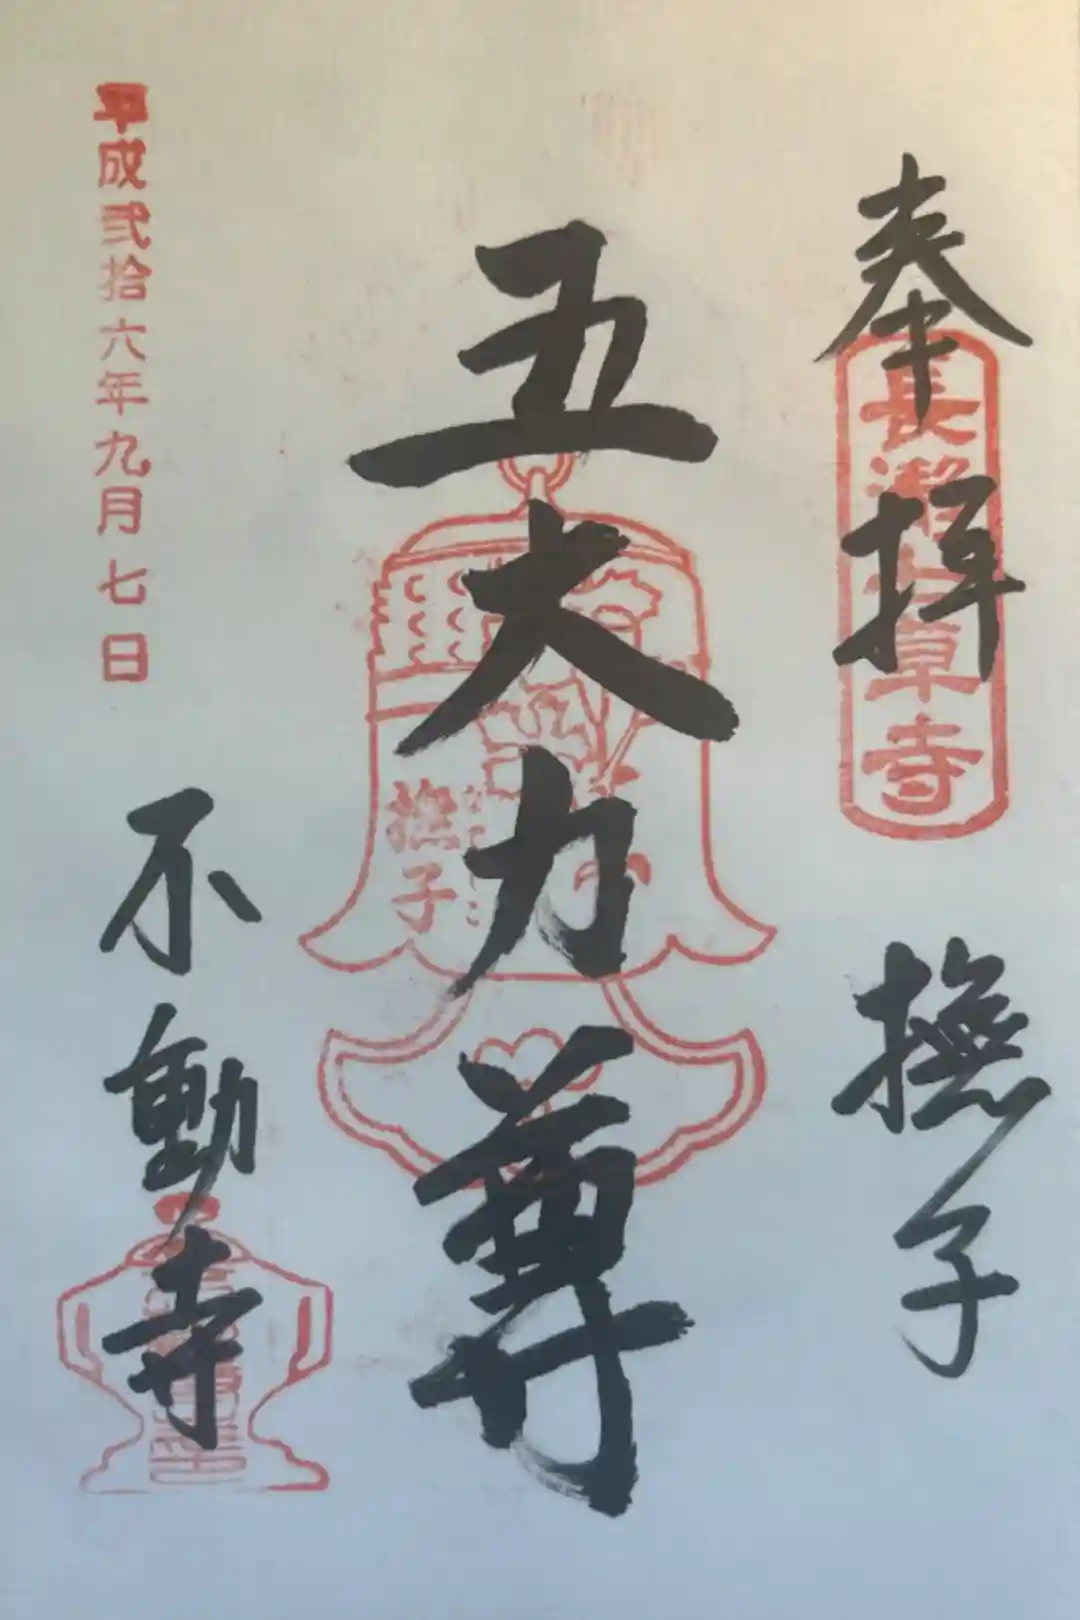 奉拝
長瀞七草寺
撫子
五大力尊
撫子
なでしこ
平成弐拾六年九月七日
不動寺